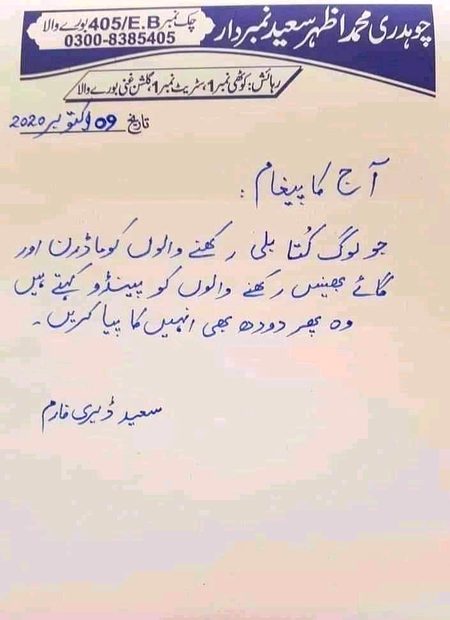 چوہدری محمد اظہر سعید نمبردار
چک نمبر 405/E.B بورے والا
0300-8385405
رہائش: کوٹھی نمبر 1، سٹریٹ نمبر 1، گلشن غنی بورے والا
تاریخ 09 اکتوبر 2020
آج کا پیغام :
جو لوگ کُتا بلی رکھنے والوں کو ماڈرن اور
گائے بھینس رکھنے والوں کو پینڈو کہتے ہیں
وہ پھر دودھ بھی انہیں کا پیا کریں۔
سعید ڈیری فارم